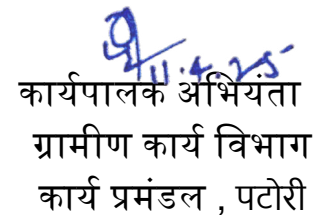 11.4.25
कार्यपालक अभियंता
ग्रामीण कार्य विभाग
कार्य प्रमंडल , पटोरी